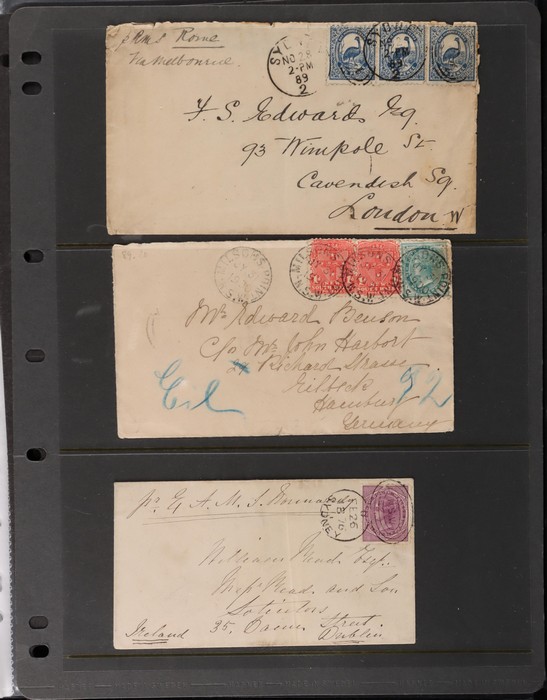 p RMS Rome
Via Melbourne
SYDNEY
NO 28
2-PM
89
2
F. S. Edwards Esq.
93 Wimpole St.
Cavendish Sq.
London W
MILSONS POINT
N.S.W
Mr Edward Benson
C/o Mr John Harbort
Richard Strasse
Eilbeck
Hamburg
Germany
52
pr E. A. M. S.
SYDNEY
FE 26
76
William Mead Esq.
Messrs Mead and Son
Solicitors
35.
Street
Ireland
Dublin